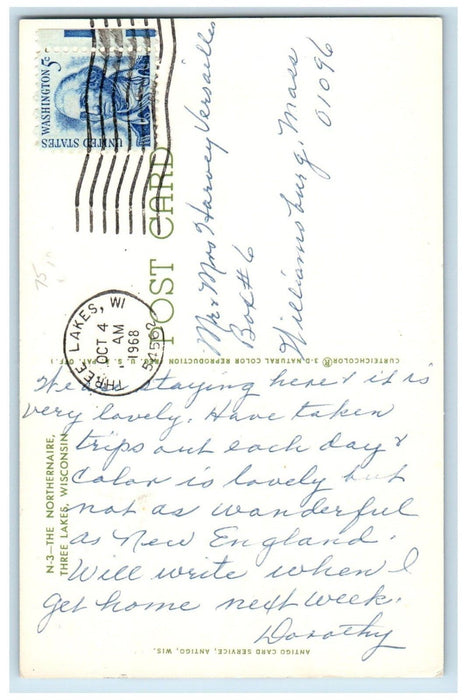 WASHINGTON 5c
UNITED STATES
THREE LAKES, WI
OCT 4
AM
1968
54562
POST CARD
Mr & Mrs Harvey Versailles
Box # 6
Williamsburg, Mass
01096
CURTEICHCOLOR® 3-D NATURAL COLOR REPRODUCTION (REG. U.S.A. PAT. OFF.)
We are staying here & it is
very lovely. Have taken
trips out each day &
color is lovely but
not as wonderful
as New England.
Will write when I
get home next week.
Dorothy
N-3—THE NORTHERNAIRE,
THREE LAKES, WISCONSIN
ANTIGO CARD SERVICE, ANTIGO, WIS.